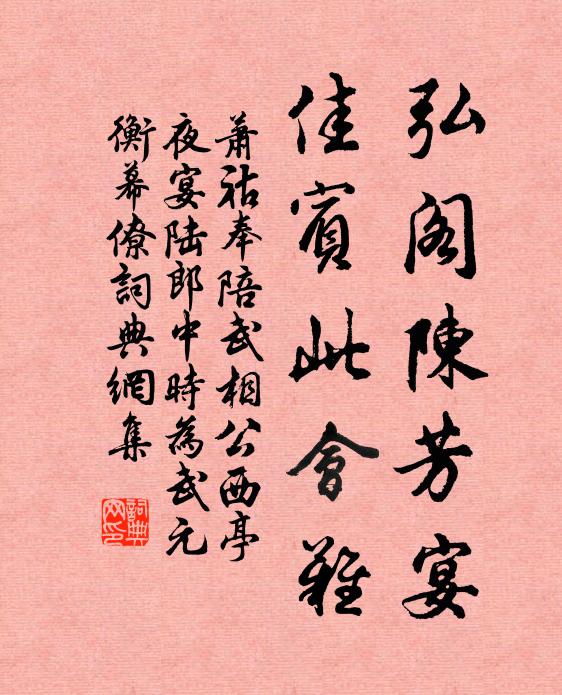 弘阁陳芳宴
佳賓此會難
萧祜奉陪武相公西亭
夜宴陆郎中時為武元
衡幕僚詞典網集
詞典
网印